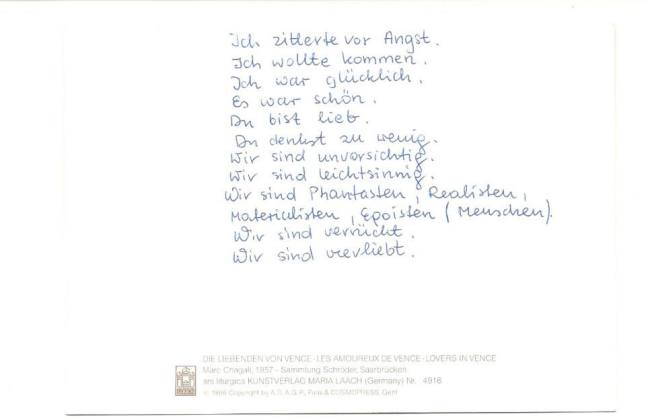 Ich zitterte vor Angst.
Ich wollte kommen.
Ich war glücklich.
Es war schön.
Du bist lieb.
Du denkst zu wenig.
Wir sind unvorsichtig.
Wir sind leichtsinnig.
Wir sind Phantasten, Realisten,
Materialisten, Egoisten (Menschen).
Wir sind verrückt.
Wir sind verliebt.
DIE LIEBENDEN VON VENCE · LES AMOUREUX DE VENCE · LOVERS IN VENCE
Marc Chagall, 1957 - Sammlung Schröder, Saarbrücken
ars liturgica KUNSTVERLAG MARIA LAACH (Germany) Nr. 4916
Copyright by A.D.A.G.P., Paris & COSMOPRESS, Genf